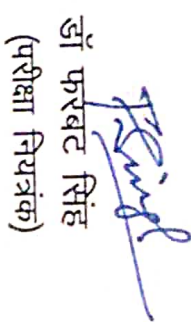 डॉ फरबट सिंह
(परीक्षा नियत्रंक)